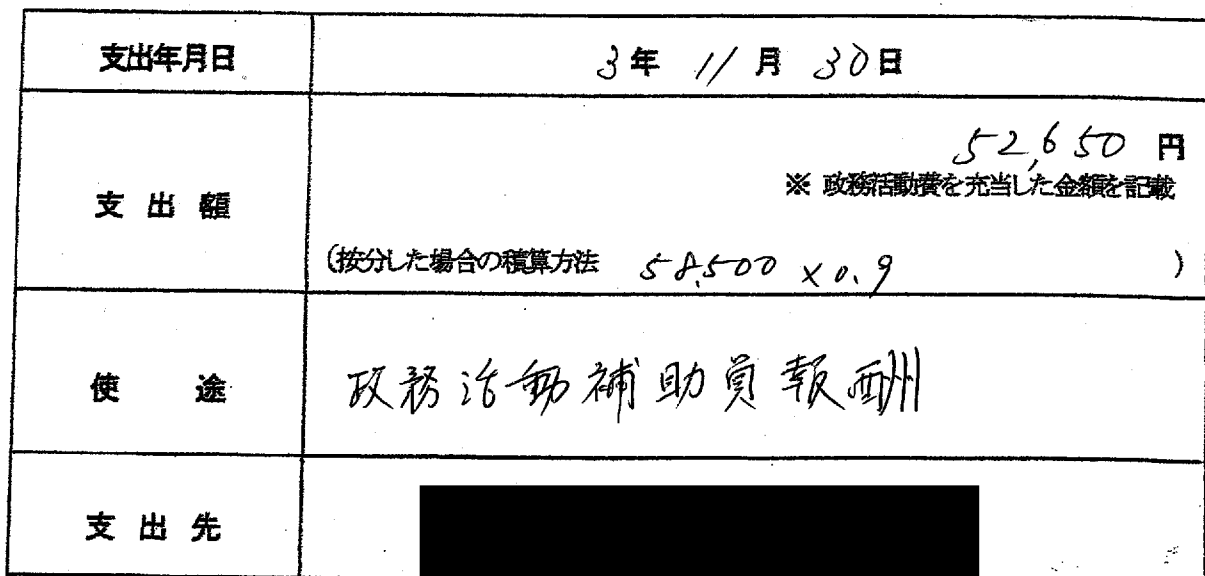 支出年月日 3年 11月 30日
支出額 52,650 円
※ 政務活動費を充当した金額を記載
(按分した場合の積算方法 58,500 ×0.9 )
使途 政務活動補助員報酬
支出先